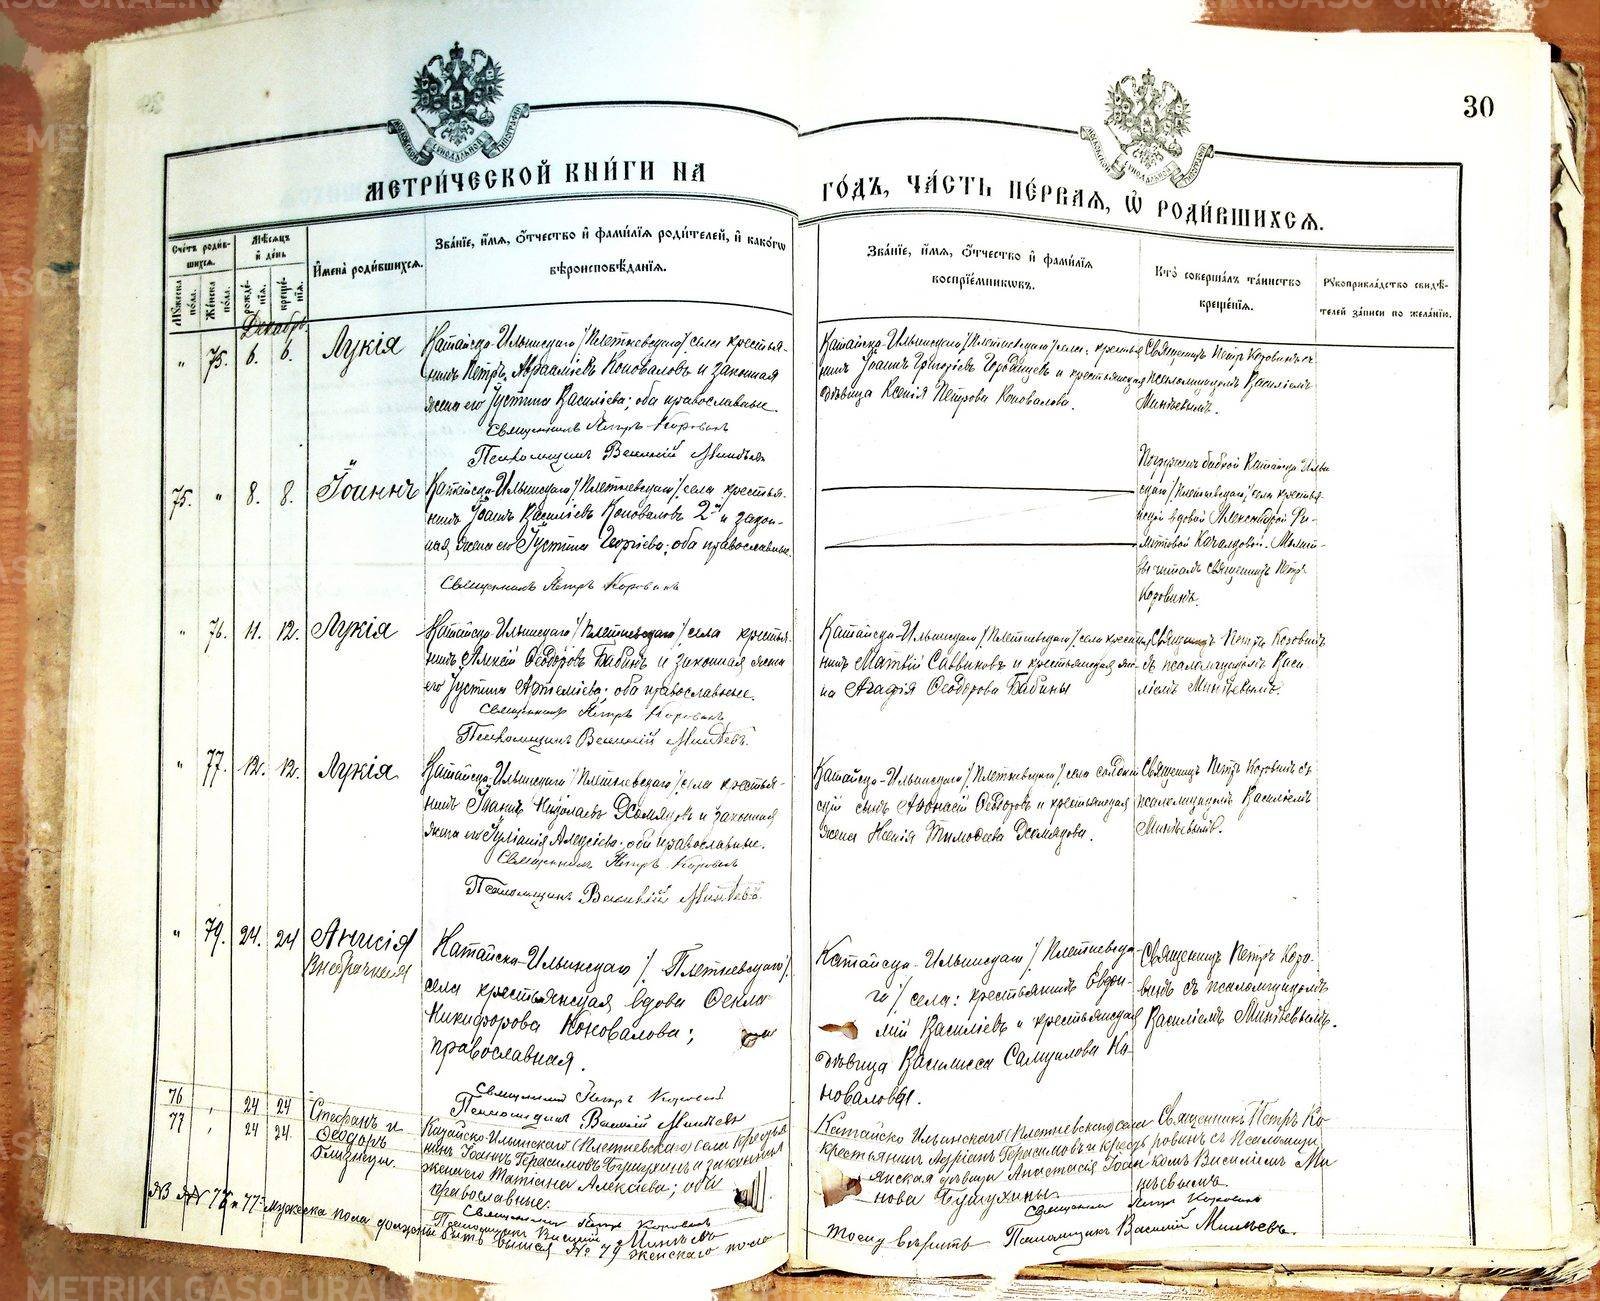 METRIKI.GASO-URAL.RU
30
МОСКОВСКОЙ СѴНОДАЛЬНОЙ ТИПОГРАФІИ
МОСКОВСКОЙ СѴНОДАЛЬНОЙ ТИПОГРАФІИ
МЕТРИ́ЧЕСКОЙ КНИ́ГИ НА
ГО́ДЪ, ЧА́СТЬ ПЕ́РВАѦ, Ѡ҆ РОДИ́ВШИХСѦ.
Сче́тъ роди́в-
шихсѧ.
Мѣ́сѧцъ
и҆ де́нь
Мꙋ́жеска по́ла.
Же́нска по́ла.
рожде́-
нїѧ.
креще́-
нїѧ.
И҆мена̀ роди́вшихсѧ.
Зва́нїе, и҆́мѧ, ѻ҆́тчество и҆ фами́лїѧ роди́телей, и҆ како́гѡ
вѣроисповѣ́данїѧ.
Зва́нїе, и҆́мѧ, ѻ҆́тчество и҆ фами́лїѧ
воспрїе́мникѡвъ.
Кто̀ соверша́лъ та́инство
креще́нїѧ.
Рꙋкоприкла́дство свидѣ́-
телей за́писи по жела́нїю.
Декабрь
" 75. 6. 6. Лукія
Катайско-Ильинскаго /Плетневскаго/ села крестья-
нинъ Петръ Авраамiевъ Коноваловъ и законная
жена его Іустина Василіева; оба православные
Священникъ Петръ Коровинъ
Псаломщикъ Василій Минѣевъ
Катайско-Ильинскаго /Плетневскаго/ села: крестья
нинъ Іоаннъ Григоріевъ Городищевъ и крестьянская
дѣвица Ксенія Петрова Коновалова.
Священникъ Петръ Коровинъ съ
псаломщикомъ Василіемъ
Минѣевымъ.
75. " 8. 8. Іоаннъ
Катайско-Ильинскаго /Плетневскаго/ села крестья-
нинъ Іоаннъ Василіевъ Коноваловъ 2й и закон-
ная жена его Іустина Георгіева; оба православные.
Священникъ Петръ Коровинъ
Погруженъ бабкой Катайско-Ильин
скаго /Плетневскаго/ села крестья-
вдовой Александрой
Молит-
вы читалъ священникъ Петръ
Коровинъ.
" 76. 11. 12. Лукія
Катайско-Ильинскаго /Плетневскаго/ села крестья-
нинъ Алексій Ѳеодоровъ Бабинъ и законная жена
его Іустина Артеміева; оба православные.
Священникъ Петръ Коровинъ
Псаломщикъ Василій Минѣевъ.
Катайско-Ильинскаго /Плетневскаго/ села крестья
нинъ Матвій Саввиновъ и крестьянская же-
на Агафія Ѳеодорова Бабины
Священникъ Петръ Коровинъ
съ псаломщикомъ Васи-
ліемъ Минѣевымъ.
" 77. 12. 12. Лукія
Катайско-Ильинскаго /Плетневскаго/ села крестья-
нинъ Іоаннъ Николаевъ Хомяковъ и законная
жена его Іуліанія Алексіева; оба православные.
Священникъ Петръ Коровинъ
Псаломщикъ Василій Минѣевъ.
Катайско-Ильинскаго /Плетневскаго/ села солдат
скій сынъ Афонасій Ѳеодоровъ и крестьянская
жена Ксенія Тимоѳеева Хомякова.
Священникъ Петръ Коровинъ съ
псаломщикомъ Василіемъ
Минѣевымъ.
" 79. 24. 24 Анисія
Внебрачная
Катайско-Ильинскаго /Плетневскаго/
села крестьянская вдова Ѳекла
Никифорова Коновалова;
православная.
Священникъ Петръ Коровинъ
Псаломщикъ Василій Минѣевъ
Катайско-Ильинскаго /Плетневска-
го/ села: крестьянинъ Евдо-
Василіевъ и крестьянская
дѣвица Василисса Самуилова Ко-
новаловы.
Священникъ Петръ Коро-
винъ съ псаломщикомъ
Василіемъ Минѣевымъ.
76 " 24 24 Стефанъ и
77 " 24 24. Ѳеодоръ
близнецы.
Катайско-Ильинскаго (Плетневскаго) села крестья
нинъ Іоаннъ Герасимовъ и законная
жена его Татіана Алексіева; оба
православные.
Священникъ Петръ Коровинъ
Псаломщикъ Василій Минѣевъ
Катайско Ильинскаго (Плетневскаго) села
крестьянинъ Адріанъ Герасимовъ и кресть
янская дѣвица Анастасія Іоан
нова
Священникъ Петръ Ко-
ровинъ съ псаломщи
комъ Василіемъ Ми
нѣевымъ.
NB №№ 76 и 77й мужеска пола должны быть выше № 79 женскаго пола
тому вѣрить
Священникъ Петръ Коровинъ
Псаломщикъ Василій Минѣевъ.
METRIKI.GASO-URAL.RU